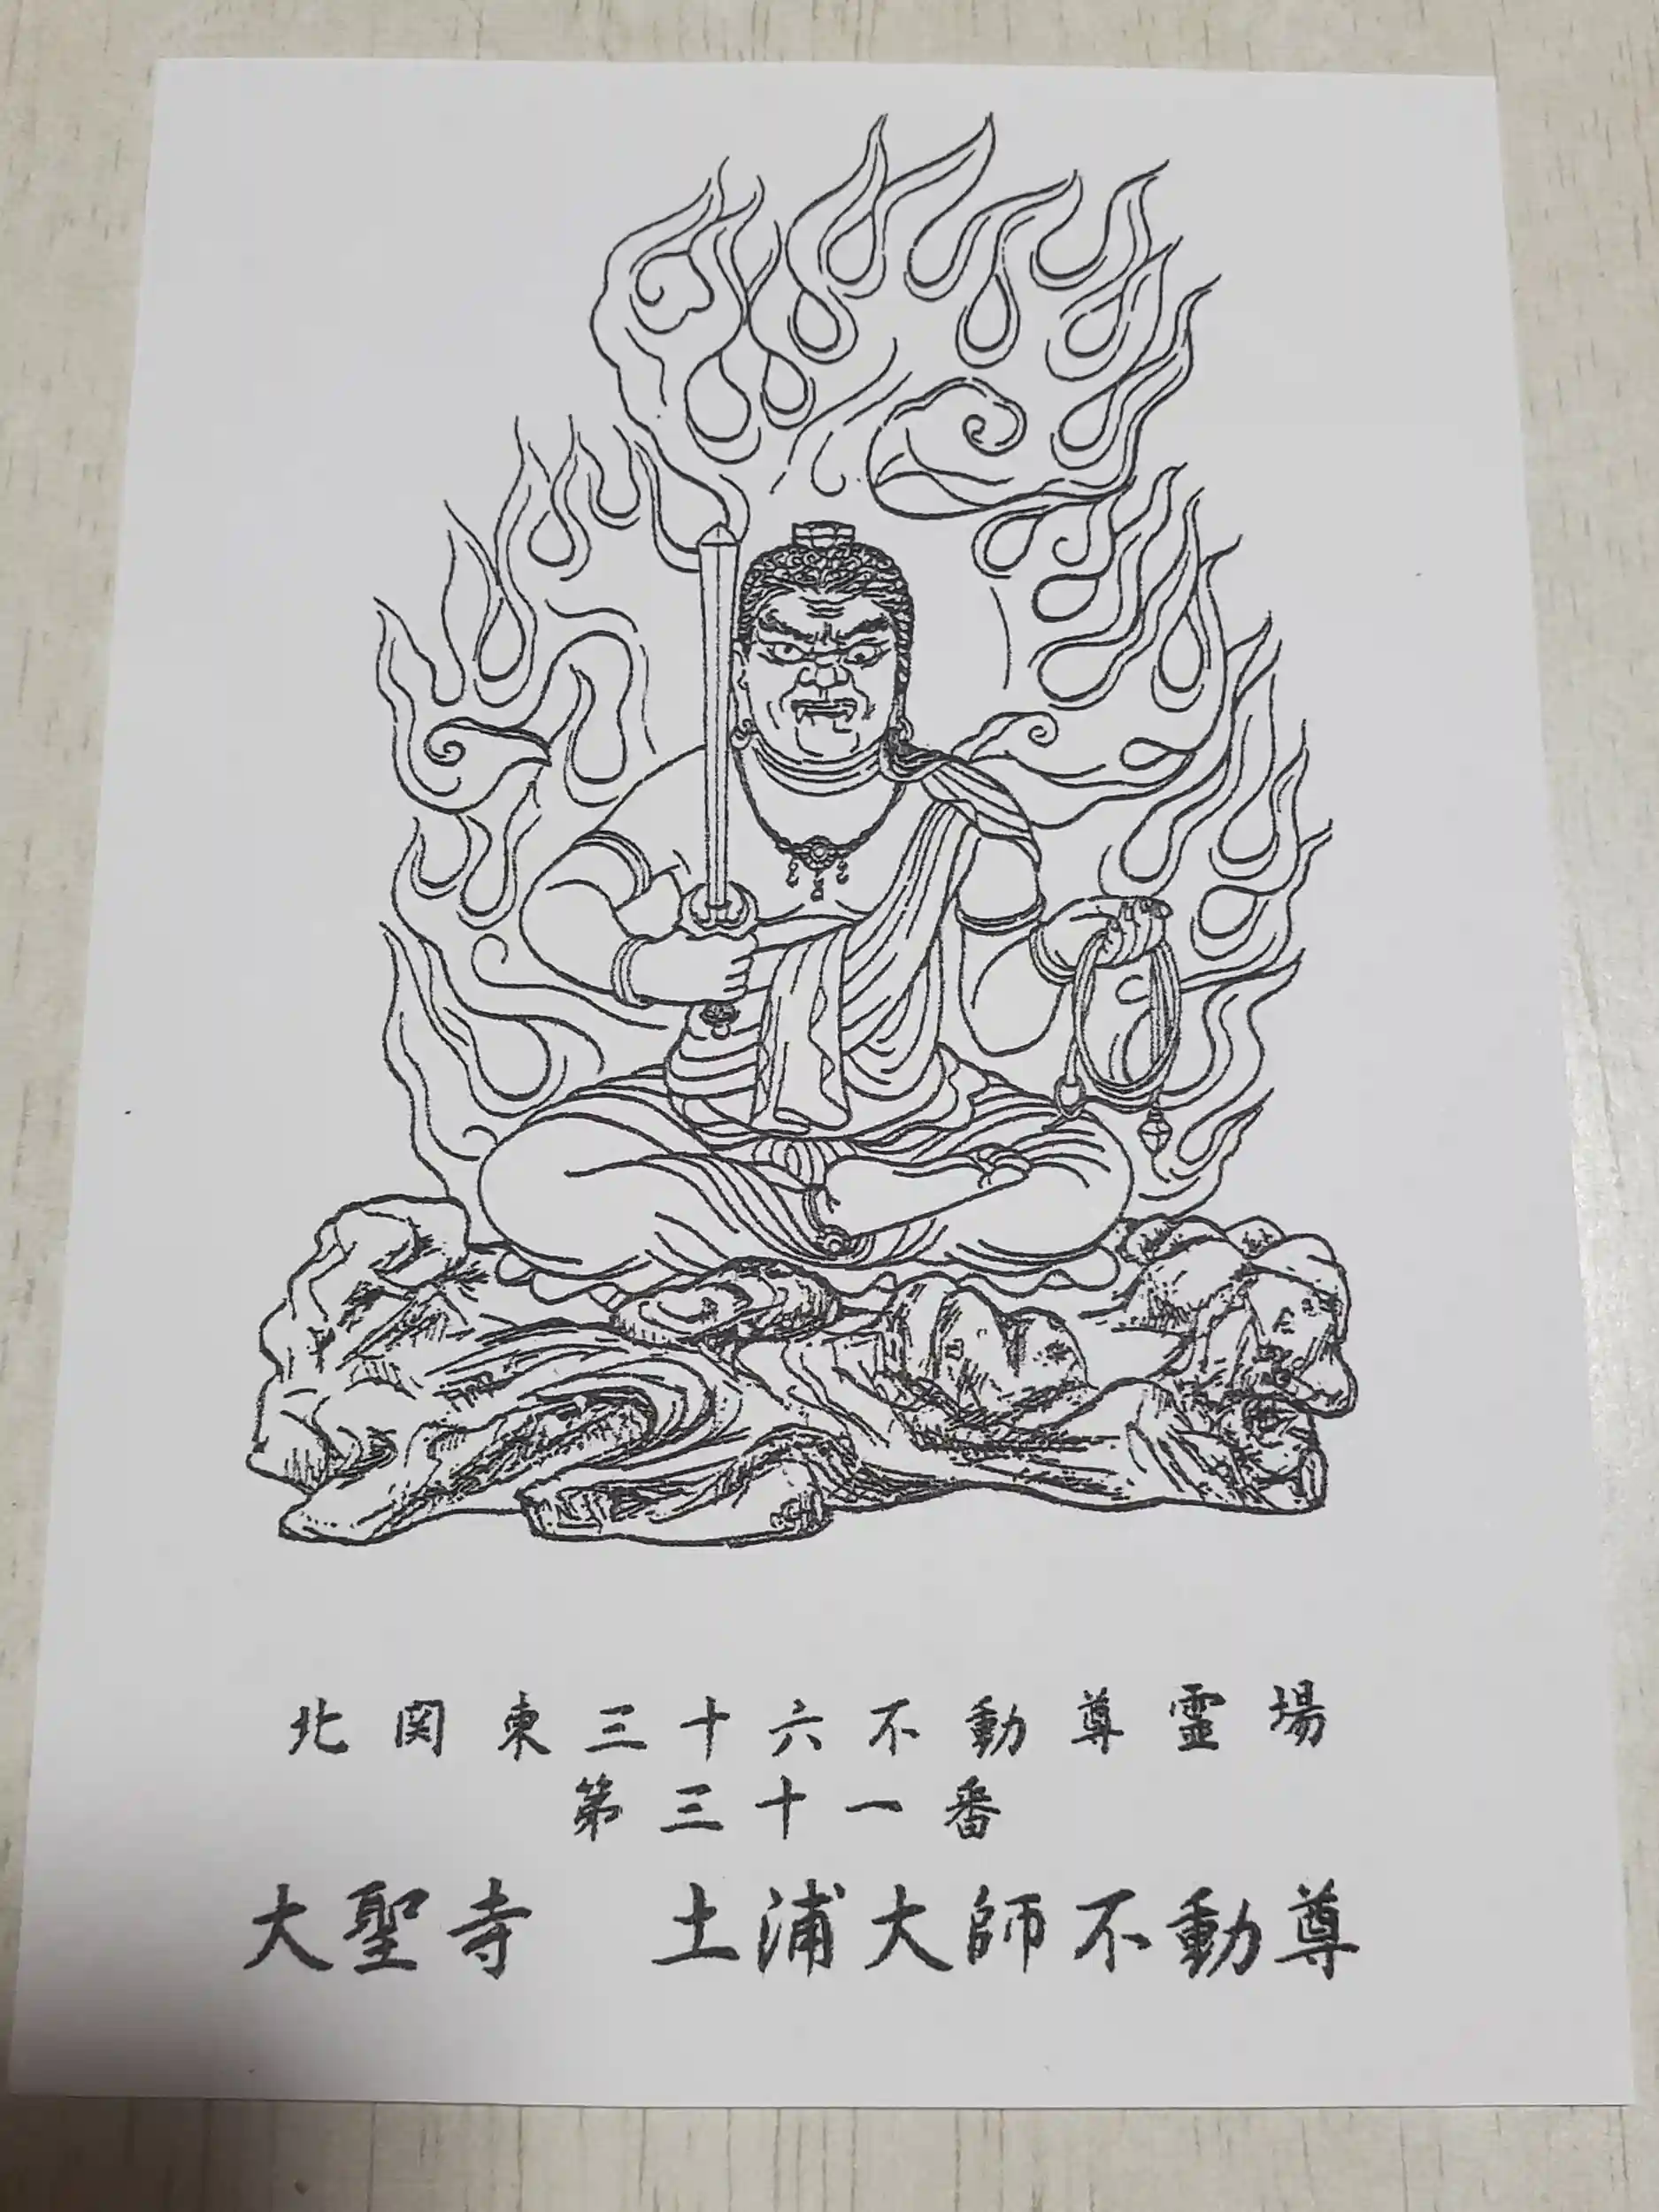 北関東三十六不動尊霊場
第三十一番
大聖寺　土浦大師不動尊